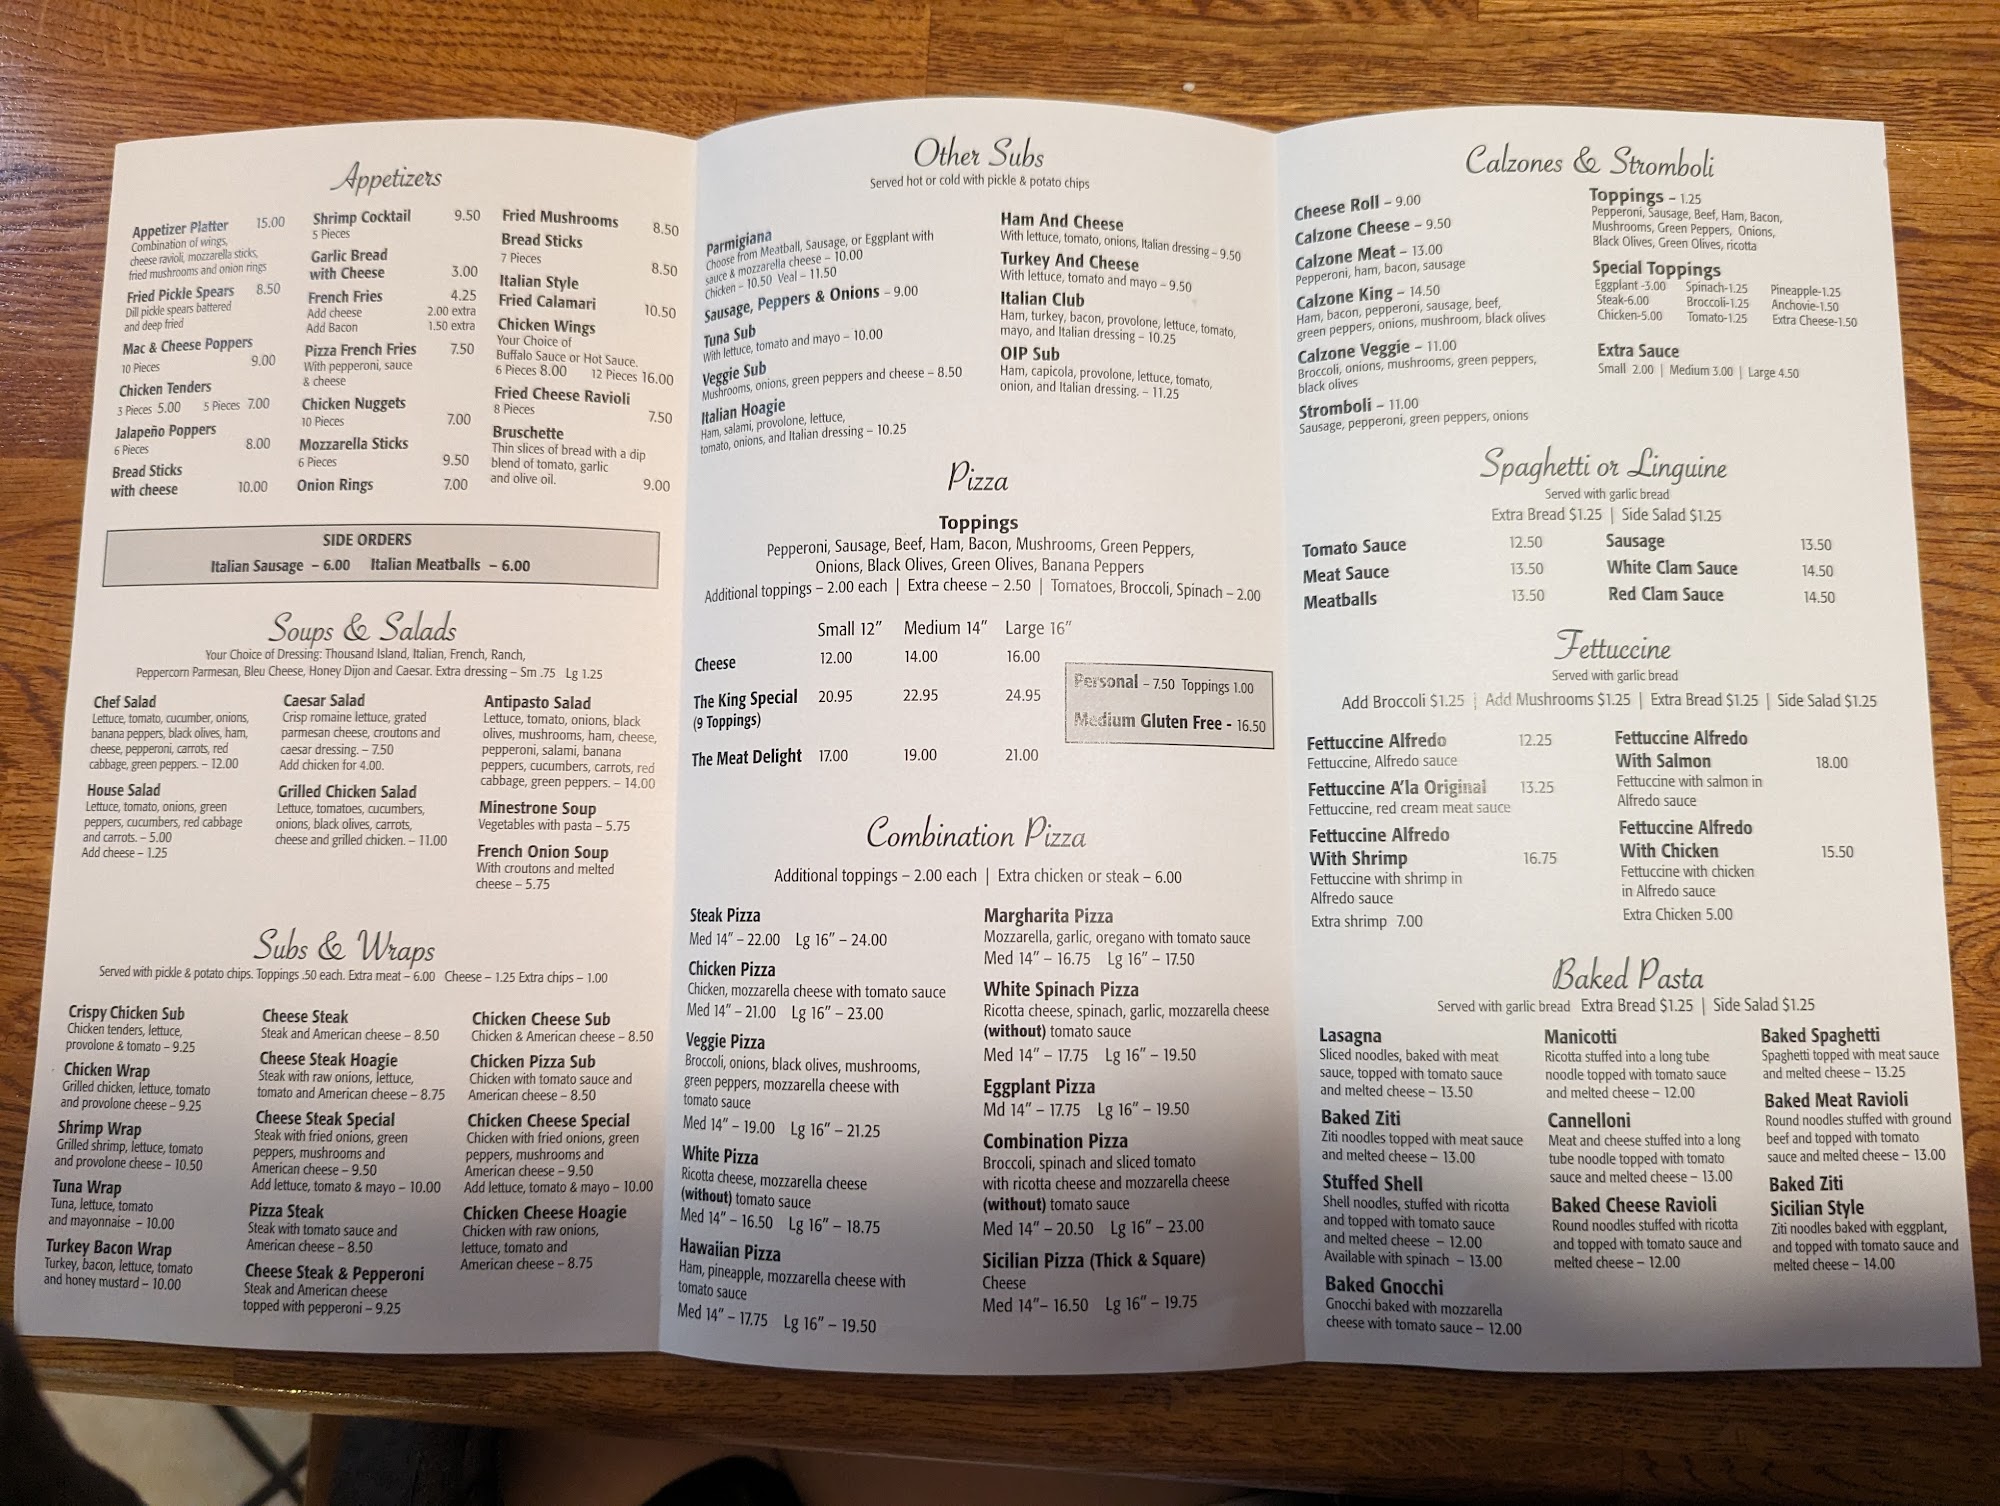 Appetizers
Appetizer Platter 15.00
Combination of wings,
cheese ravioli, mozzarella sticks,
fried mushrooms and onion rings
Fried Pickle Spears 8.50
Dill pickle spears battered
and deep fried
Mac & Cheese Poppers
10 Pieces 9.00
Chicken Tenders
3 Pieces 5.00 5 Pieces 7.00
Jalapeño Poppers
6 Pieces 8.00
Bread Sticks
with cheese 10.00
Shrimp Cocktail 9.50
5 Pieces
Garlic Bread
with Cheese 3.00
French Fries 4.25
Add cheese 2.00 extra
Add Bacon 1.50 extra
Pizza French Fries 7.50
With pepperoni, sauce
& cheese
Chicken Nuggets
10 Pieces 7.00
Mozzarella Sticks
6 Pieces 9.50
Onion Rings 7.00
Fried Mushrooms 8.50
Bread Sticks
7 Pieces 8.50
Italian Style
Fried Calamari 10.50
Chicken Wings
Your Choice of
Buffalo Sauce or Hot Sauce.
6 Pieces 8.00 12 Pieces 16.00
Fried Cheese Ravioli
8 Pieces 7.50
Bruschette
Thin slices of bread with a dip
blend of tomato, garlic
and olive oil. 9.00
SIDE ORDERS
Italian Sausage – 6.00 Italian Meatballs – 6.00
Soups & Salads
Your Choice of Dressing: Thousand Island, Italian, French, Ranch,
Peppercorn Parmesan, Bleu Cheese, Honey Dijon and Caesar. Extra dressing – Sm .75 Lg 1.25
Chef Salad
Lettuce, tomato, cucumber, onions,
banana peppers, black olives, ham,
cheese, pepperoni, carrots, red
cabbage, green peppers. – 12.00
House Salad
Lettuce, tomato, onions, green
peppers, cucumbers, red cabbage
and carrots. – 5.00
Add cheese – 1.25
Caesar Salad
Crisp romaine lettuce, grated
parmesan cheese, croutons and
caesar dressing. – 7.50
Add chicken for 4.00.
Grilled Chicken Salad
Lettuce, tomatoes, cucumbers,
onions, black olives, carrots,
cheese and grilled chicken. – 11.00
Antipasto Salad
Lettuce, tomato, onions, black
olives, mushrooms, ham, cheese,
pepperoni, salami, banana
peppers, cucumbers, carrots, red
cabbage, green peppers. – 14.00
Minestrone Soup
Vegetables with pasta – 5.75
French Onion Soup
With croutons and melted
cheese – 5.75
Subs & Wraps
Served with pickle & potato chips. Toppings .50 each. Extra meat – 6.00 Cheese – 1.25 Extra chips – 1.00
Crispy Chicken Sub
Chicken tenders, lettuce,
provolone & tomato – 9.25
Chicken Wrap
Grilled chicken, lettuce, tomato
and provolone cheese – 9.25
Shrimp Wrap
Grilled shrimp, lettuce, tomato
and provolone cheese – 10.50
Tuna Wrap
Tuna, lettuce, tomato
and mayonnaise – 10.00
Turkey Bacon Wrap
Turkey, bacon, lettuce, tomato
and honey mustard – 10.00
Cheese Steak
Steak and American cheese – 8.50
Cheese Steak Hoagie
Steak with raw onions, lettuce,
tomato and American cheese – 8.75
Cheese Steak Special
Steak with fried onions, green
peppers, mushrooms and
American cheese – 9.50
Add lettuce, tomato & mayo – 10.00
Pizza Steak
Steak with tomato sauce and
American cheese – 8.50
Cheese Steak & Pepperoni
Steak and American cheese
topped with pepperoni – 9.25
Chicken Cheese Sub
Chicken & American cheese – 8.50
Chicken Pizza Sub
Chicken with tomato sauce and
American cheese – 8.50
Chicken Cheese Special
Chicken with fried onions, green
peppers, mushrooms and
American cheese – 9.50
Add lettuce, tomato & mayo – 10.00
Chicken Cheese Hoagie
Chicken with raw onions,
lettuce, tomato and
American cheese – 8.75
Other Subs
Served hot or cold with pickle & potato chips
Parmigiana
Choose from Meatball, Sausage, or Eggplant with
sauce & mozzarella cheese – 10.00
Chicken – 10.50 Veal – 11.50
Sausage, Peppers & Onions – 9.00
Tuna Sub
With lettuce, tomato and mayo – 10.00
Veggie Sub
Mushrooms, onions, green peppers and cheese – 8.50
Italian Hoagie
Ham, salami, provolone, lettuce,
tomato, onions, and Italian dressing – 10.25
Ham And Cheese
With lettuce, tomato, onions, Italian dressing – 9.50
Turkey And Cheese
With lettuce, tomato and mayo – 9.50
Italian Club
Ham, turkey, bacon, provolone, lettuce, tomato,
mayo, and Italian dressing – 10.25
OIP Sub
Ham, capicola, provolone, lettuce, tomato,
onion, and Italian dressing. – 11.25
Pizza
Toppings
Pepperoni, Sausage, Beef, Ham, Bacon, Mushrooms, Green Peppers,
Onions, Black Olives, Green Olives, Banana Peppers
Additional toppings – 2.00 each | Extra cheese – 2.50 | Tomatoes, Broccoli, Spinach – 2.00
Small 12” Medium 14” Large 16”
Cheese 12.00 14.00 16.00
The King Special 20.95 22.95 24.95
(9 Toppings)
The Meat Delight 17.00 19.00 21.00
Personal – 7.50 Toppings 1.00
Medium Gluten Free - 16.50
Combination Pizza
Additional toppings – 2.00 each | Extra chicken or steak – 6.00
Steak Pizza
Med 14” – 22.00 Lg 16” – 24.00
Chicken Pizza
Chicken, mozzarella cheese with tomato sauce
Med 14” – 21.00 Lg 16” – 23.00
Veggie Pizza
Broccoli, onions, black olives, mushrooms,
green peppers, mozzarella cheese with
tomato sauce
Med 14” – 19.00 Lg 16” – 21.25
White Pizza
Ricotta cheese, mozzarella cheese
(without) tomato sauce
Med 14” – 16.50 Lg 16” – 18.75
Hawaiian Pizza
Ham, pineapple, mozzarella cheese with
tomato sauce
Med 14” – 17.75 Lg 16” – 19.50
Margharita Pizza
Mozzarella, garlic, oregano with tomato sauce
Med 14” – 16.75 Lg 16” – 17.50
White Spinach Pizza
Ricotta cheese, spinach, garlic, mozzarella cheese
(without) tomato sauce
Med 14” – 17.75 Lg 16” – 19.50
Eggplant Pizza
Md 14” – 17.75 Lg 16” – 19.50
Combination Pizza
Broccoli, spinach and sliced tomato
with ricotta cheese and mozzarella cheese
(without) tomato sauce
Med 14” – 20.50 Lg 16” – 23.00
Sicilian Pizza (Thick & Square)
Cheese
Med 14”– 16.50 Lg 16” – 19.75
Calzones & Stromboli
Cheese Roll – 9.00
Calzone Cheese – 9.50
Calzone Meat – 13.00
Pepperoni, ham, bacon, sausage
Calzone King – 14.50
Ham, bacon, pepperoni, sausage, beef,
green peppers, onions, mushroom, black olives
Calzone Veggie – 11.00
Broccoli, onions, mushrooms, green peppers,
black olives
Stromboli – 11.00
Sausage, pepperoni, green peppers, onions
Toppings – 1.25
Pepperoni, Sausage, Beef, Ham, Bacon,
Mushrooms, Green Peppers, Onions,
Black Olives, Green Olives, ricotta
Special Toppings
Eggplant -3.00 Spinach-1.25 Pineapple-1.25
Steak-6.00 Broccoli-1.25 Anchovie-1.50
Chicken-5.00 Tomato-1.25 Extra Cheese-1.50
Extra Sauce
Small 2.00 | Medium 3.00 | Large 4.50
Spaghetti or Linguine
Served with garlic bread
Extra Bread $1.25 | Side Salad $1.25
Tomato Sauce 12.50
Meat Sauce 13.50
Meatballs 13.50
Sausage 13.50
White Clam Sauce 14.50
Red Clam Sauce 14.50
Fettuccine
Served with garlic bread
Add Broccoli $1.25 | Add Mushrooms $1.25 | Extra Bread $1.25 | Side Salad $1.25
Fettuccine Alfredo 12.25
Fettuccine, Alfredo sauce
Fettuccine A'la Original 13.25
Fettuccine, red cream meat sauce
Fettuccine Alfredo
With Shrimp 16.75
Fettuccine with shrimp in
Alfredo sauce
Extra shrimp 7.00
Fettuccine Alfredo
With Salmon 18.00
Fettuccine with salmon in
Alfredo sauce
Fettuccine Alfredo
With Chicken 15.50
Fettuccine with chicken
in Alfredo sauce
Extra Chicken 5.00
Baked Pasta
Served with garlic bread Extra Bread $1.25 | Side Salad $1.25
Lasagna
Sliced noodles, baked with meat
sauce, topped with tomato sauce
and melted cheese – 13.50
Baked Ziti
Ziti noodles topped with meat sauce
and melted cheese – 13.00
Stuffed Shell
Shell noodles, stuffed with ricotta
and topped with tomato sauce
and melted cheese – 12.00
Available with spinach – 13.00
Baked Gnocchi
Gnocchi baked with mozzarella
cheese with tomato sauce – 12.00
Manicotti
Ricotta stuffed into a long tube
noodle topped with tomato sauce
and melted cheese – 12.00
Cannelloni
Meat and cheese stuffed into a long
tube noodle topped with tomato
sauce and melted cheese – 13.00
Baked Cheese Ravioli
Round noodles stuffed with ricotta
and topped with tomato sauce and
melted cheese – 12.00
Baked Spaghetti
Spaghetti topped with meat sauce
and melted cheese – 13.25
Baked Meat Ravioli
Round noodles stuffed with ground
beef and topped with tomato
sauce and melted cheese – 13.00
Baked Ziti
Sicilian Style
Ziti noodles baked with eggplant,
and topped with tomato sauce and
melted cheese – 14.00